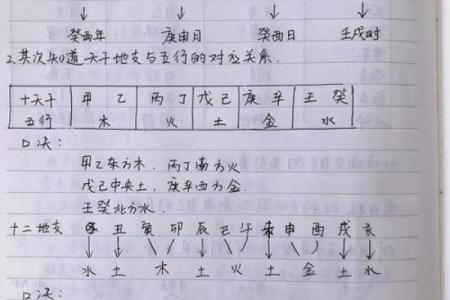 癸酉年 庚申月 癸酉日 壬戌时
2.其次知道天干地支与五行的对应关系.
十天干 甲 乙 丙 丁 戊 己 庚 辛 壬 癸
五行 木 火 土 金 水
口决:
甲乙东方木. 丙丁南方火
戊己中央土, 庚辛西方金.
壬癸北方水.
十二地支 子 丑 寅 卯 辰 巳 午 未 申 酉 戌 亥
水 土 木 土 火 土 金 土 水
口决: